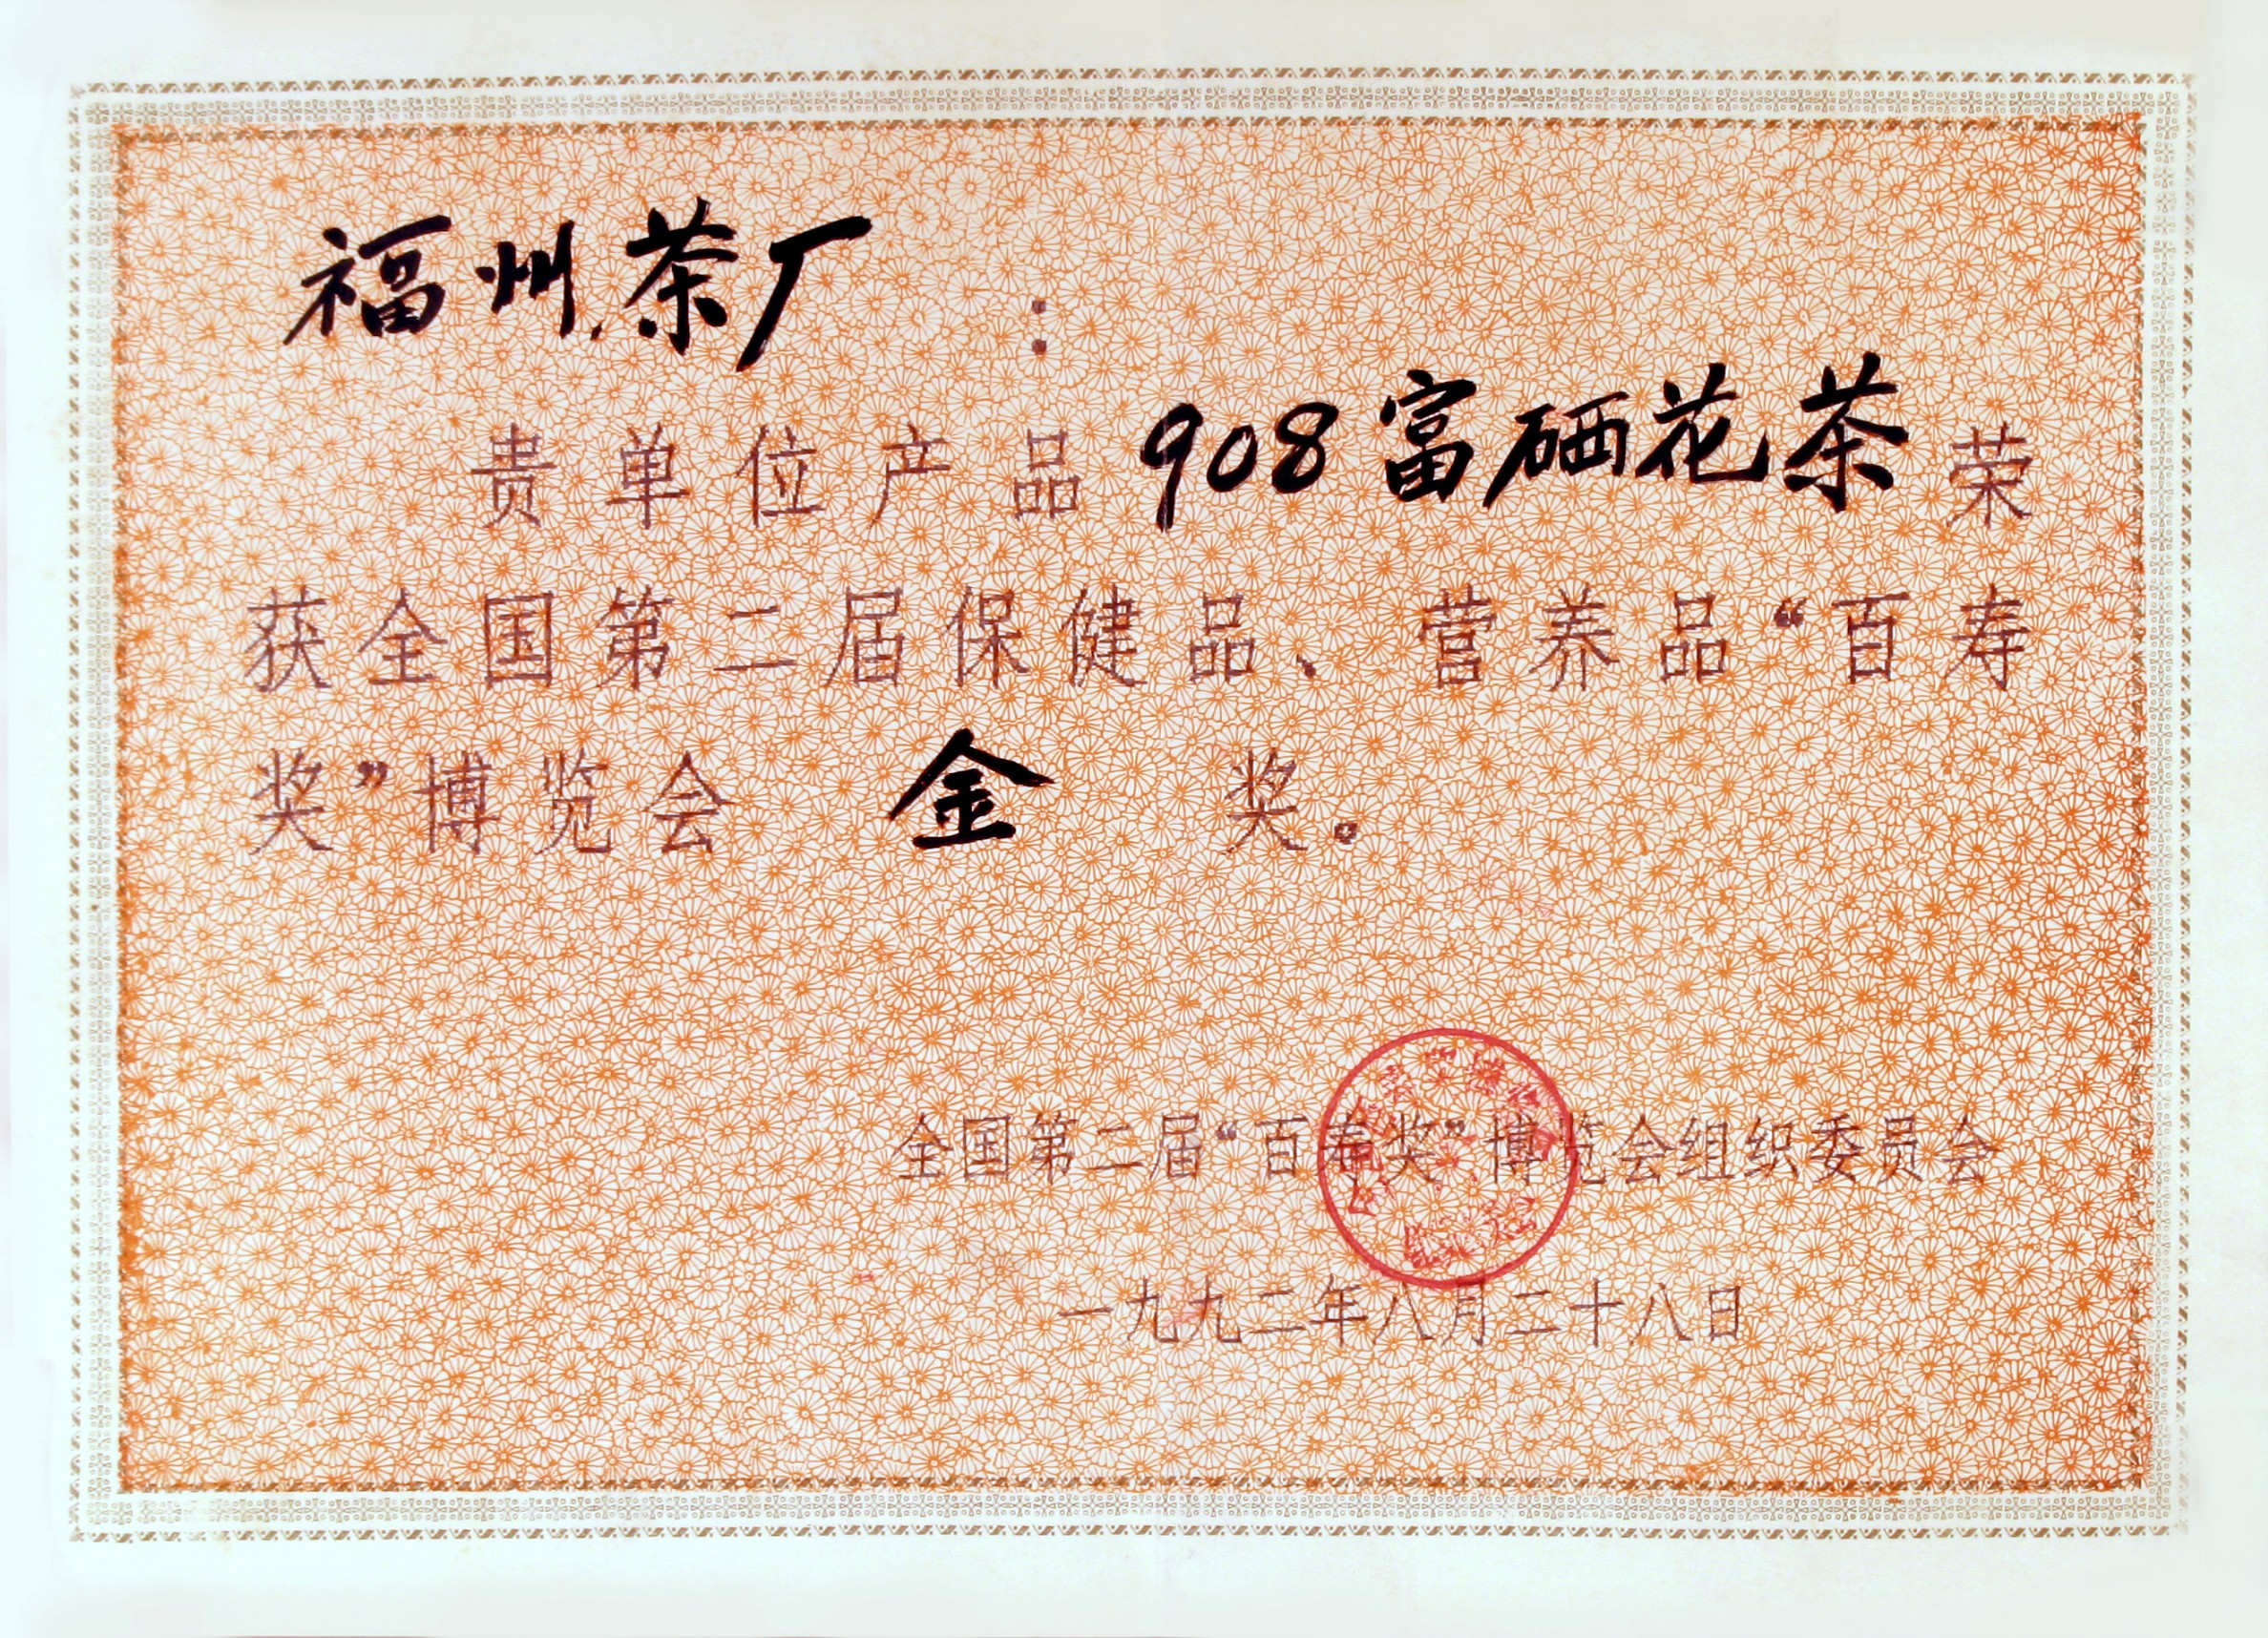 福州茶厂：
贵单位产品908富硒花茶荣
获全国第二届保健品、营养品“百寿
奖”博览会 金 奖。
全国第二届“百寿奖”博览会组织委员会
一九九二年八月二十八日